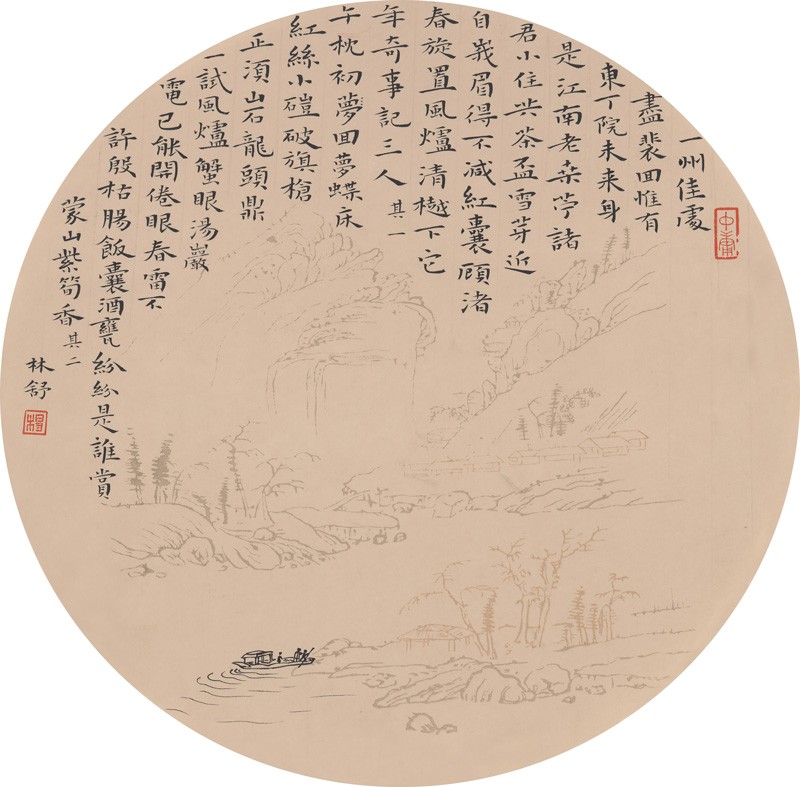 中庸
一州佳處
盡裴回惟有
東丁院未来身
是江南老桑苧諸
君小住共茶盃雪芽近
自峩眉得不减紅囊頋渚
春旋置風爐清樾下它
年奇事記三人其一
午枕初夢回夢蝶床
紅絲小磑破旗槍
正湏山石龍頭鼎
一試風爐蟹眼湯巖
電已能開倦眼春雷不
許殷枯腸飯囊酒甕紛紛是誰賞
蒙山紫筍香其二
林舒